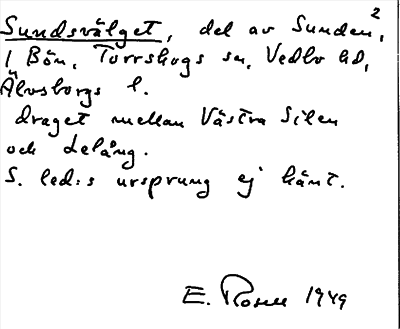 Sundsvälget, del av Sunden²,
i Bön, Torrskogs sn, Vedbo hd,
Älvsborgs l.
draget mellan Västra Silen
och Lelång.
S. led:s ursprung ej känt.
E. Rosell 1949